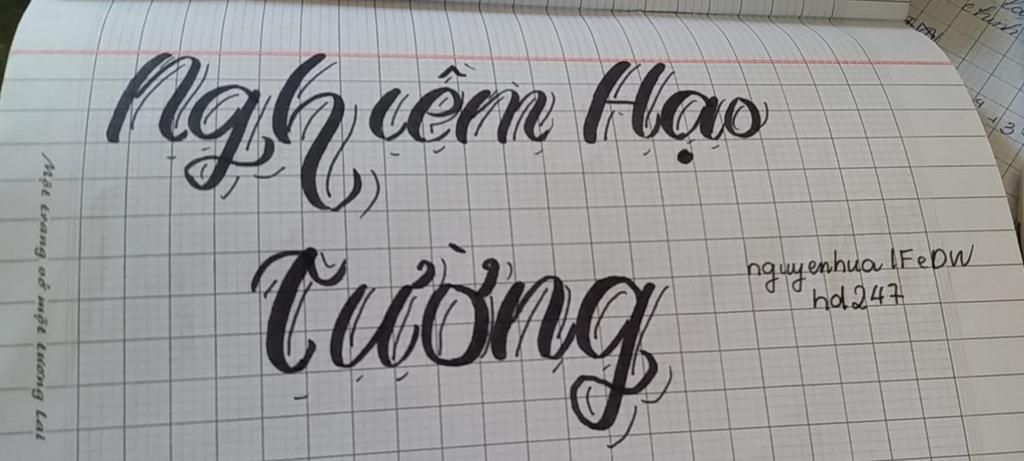 Nghiêm Hạo
Tường
nguyenhua1FeDW
hd247
Một trang vở một tương lai